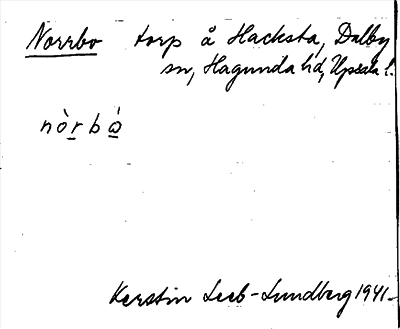 Norrbo torp å Hacksta, Dalby
sn, Hagunda hd, Upsala l.
nòrbó̱
Kerstin Leeb-Lundberg 1941.